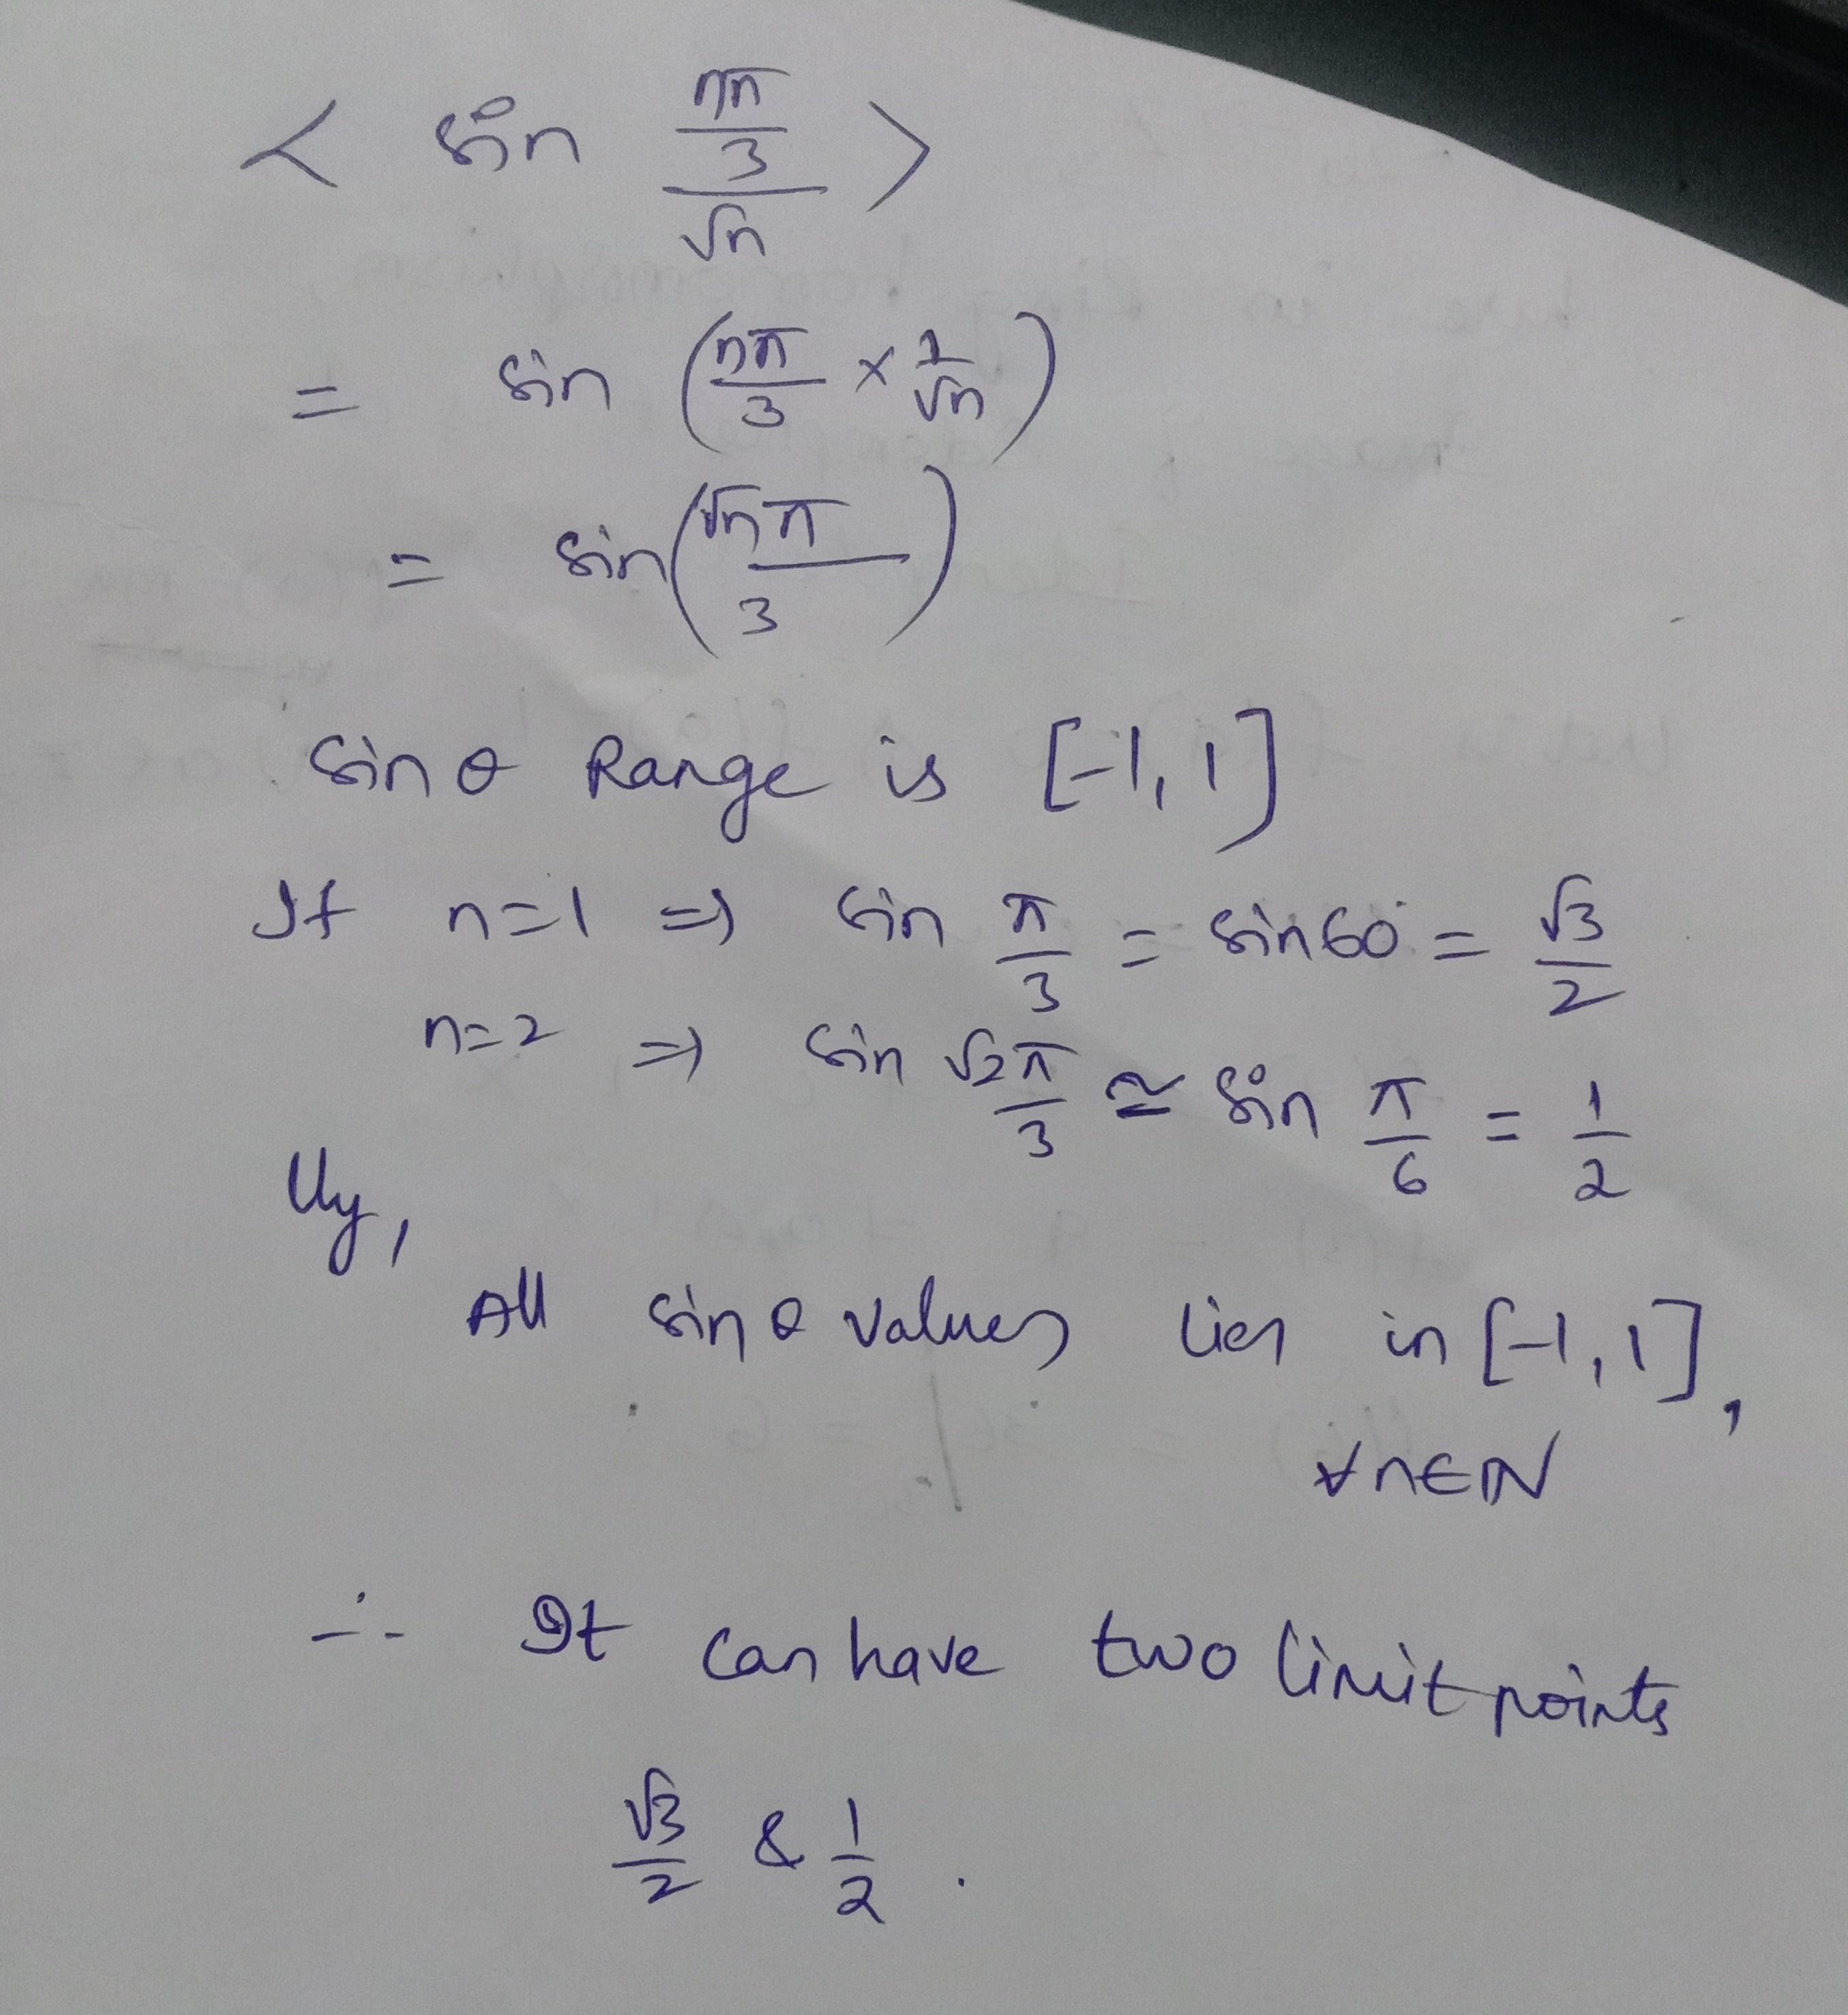 < sin nπ/3/√n >
= sin (nπ/3 × 1/√n)
= sin(√nπ/3)
sinθ Range is [-1, 1]
If n=1 ⇒ sin π/3 = sin60° = √3/2
n=2 ⇒ sin √2π/3 ≅ sin π/6 = 1/2
llly,
All sinθ values lies in [-1, 1],
∀n∈N
∴ It can have two limit points
√3/2 & 1/2.